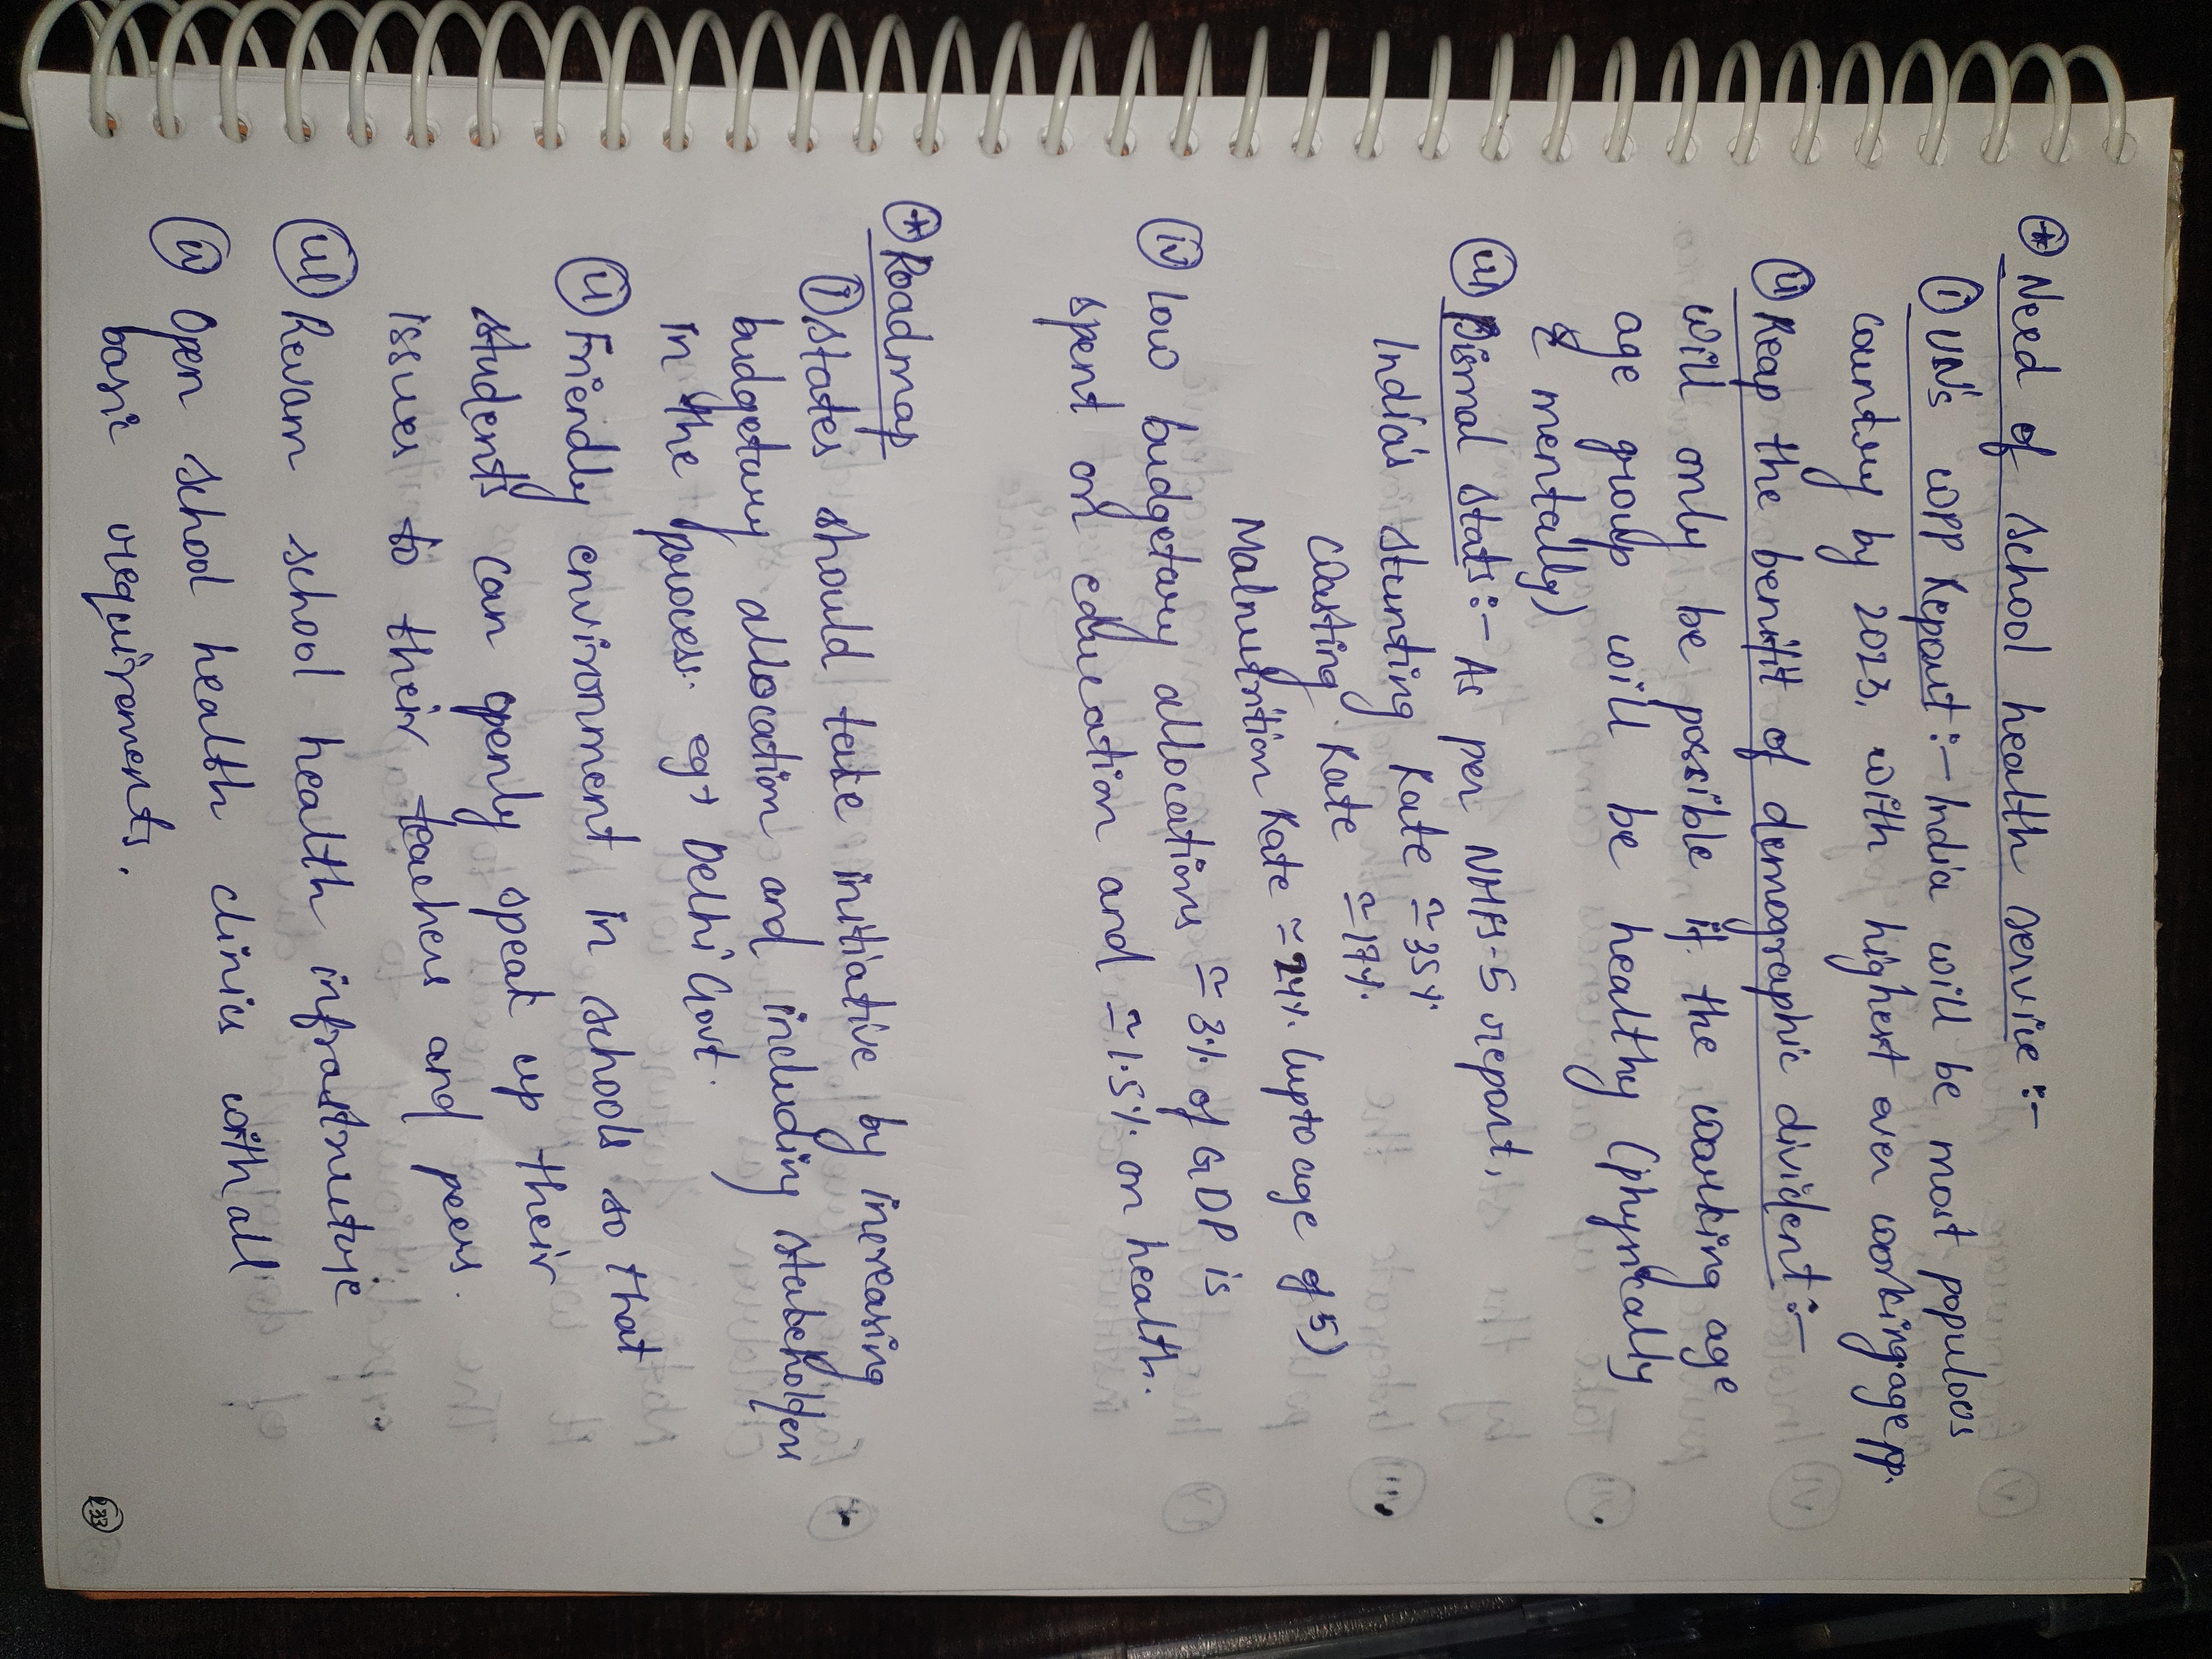 ⊛ Need of school health service :-
(i) UN's WPP Report :- India will be most populoos
country by 2023, with highest ever working age pp.
(ii) Reap the benifit of demographic divident :-
will only be possible if the working age
age group will be healthy (physically
& mentally)
(iii) Dismal stats :- As per NHFS-5 report,
India's stunting Rate ≃ 35%
Wasting Rate ≃ 19%
Malnutrition Rate ≃ 24% (upto age of 5)
(iv) low budgetary allocations ≃ 3% of GDP is
spent on education and ≃ 1.5% on health.
⊛ Roadmap
(i) States should take initiative by increasing
budgetary allocation and including stakeholders
in the process. eg→ Delhi Govt.
(ii) Friendly environment in schools so that
students can openly speak up their
issues to their teachers and peers.
(iii) Revam school health infrastructure
(iv) Open school health clinics with all
basic requirements.
233